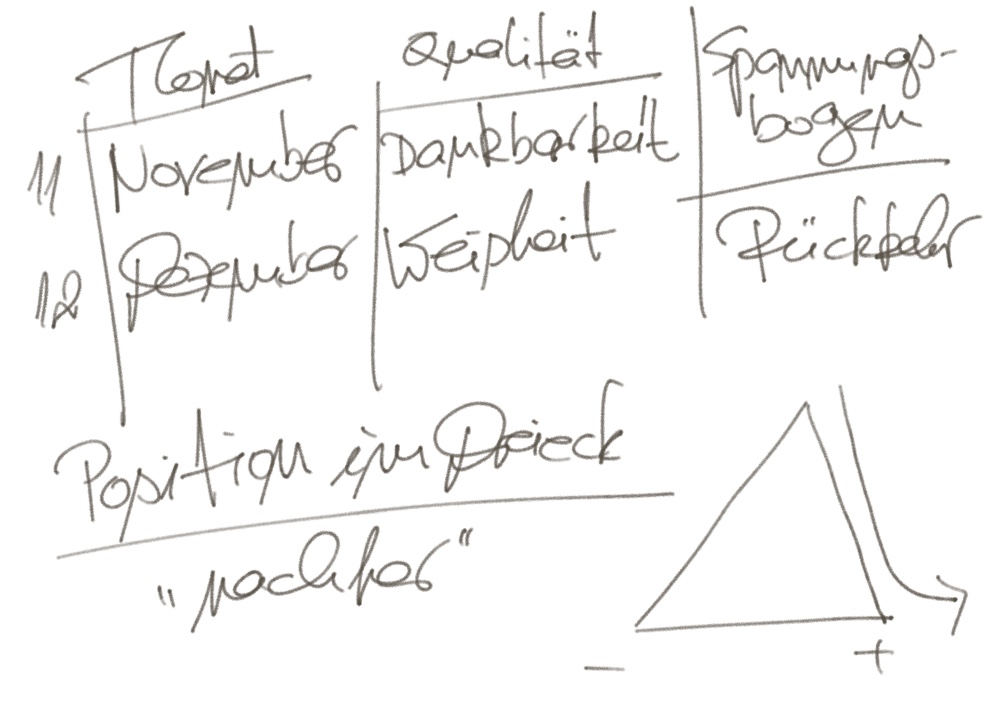 Monat Qualität Spannungs-
bogen
11 November Dankbarkeit
12 Dezember Weisheit Rückkehr
Position im Dreieck
„nachher"
− +